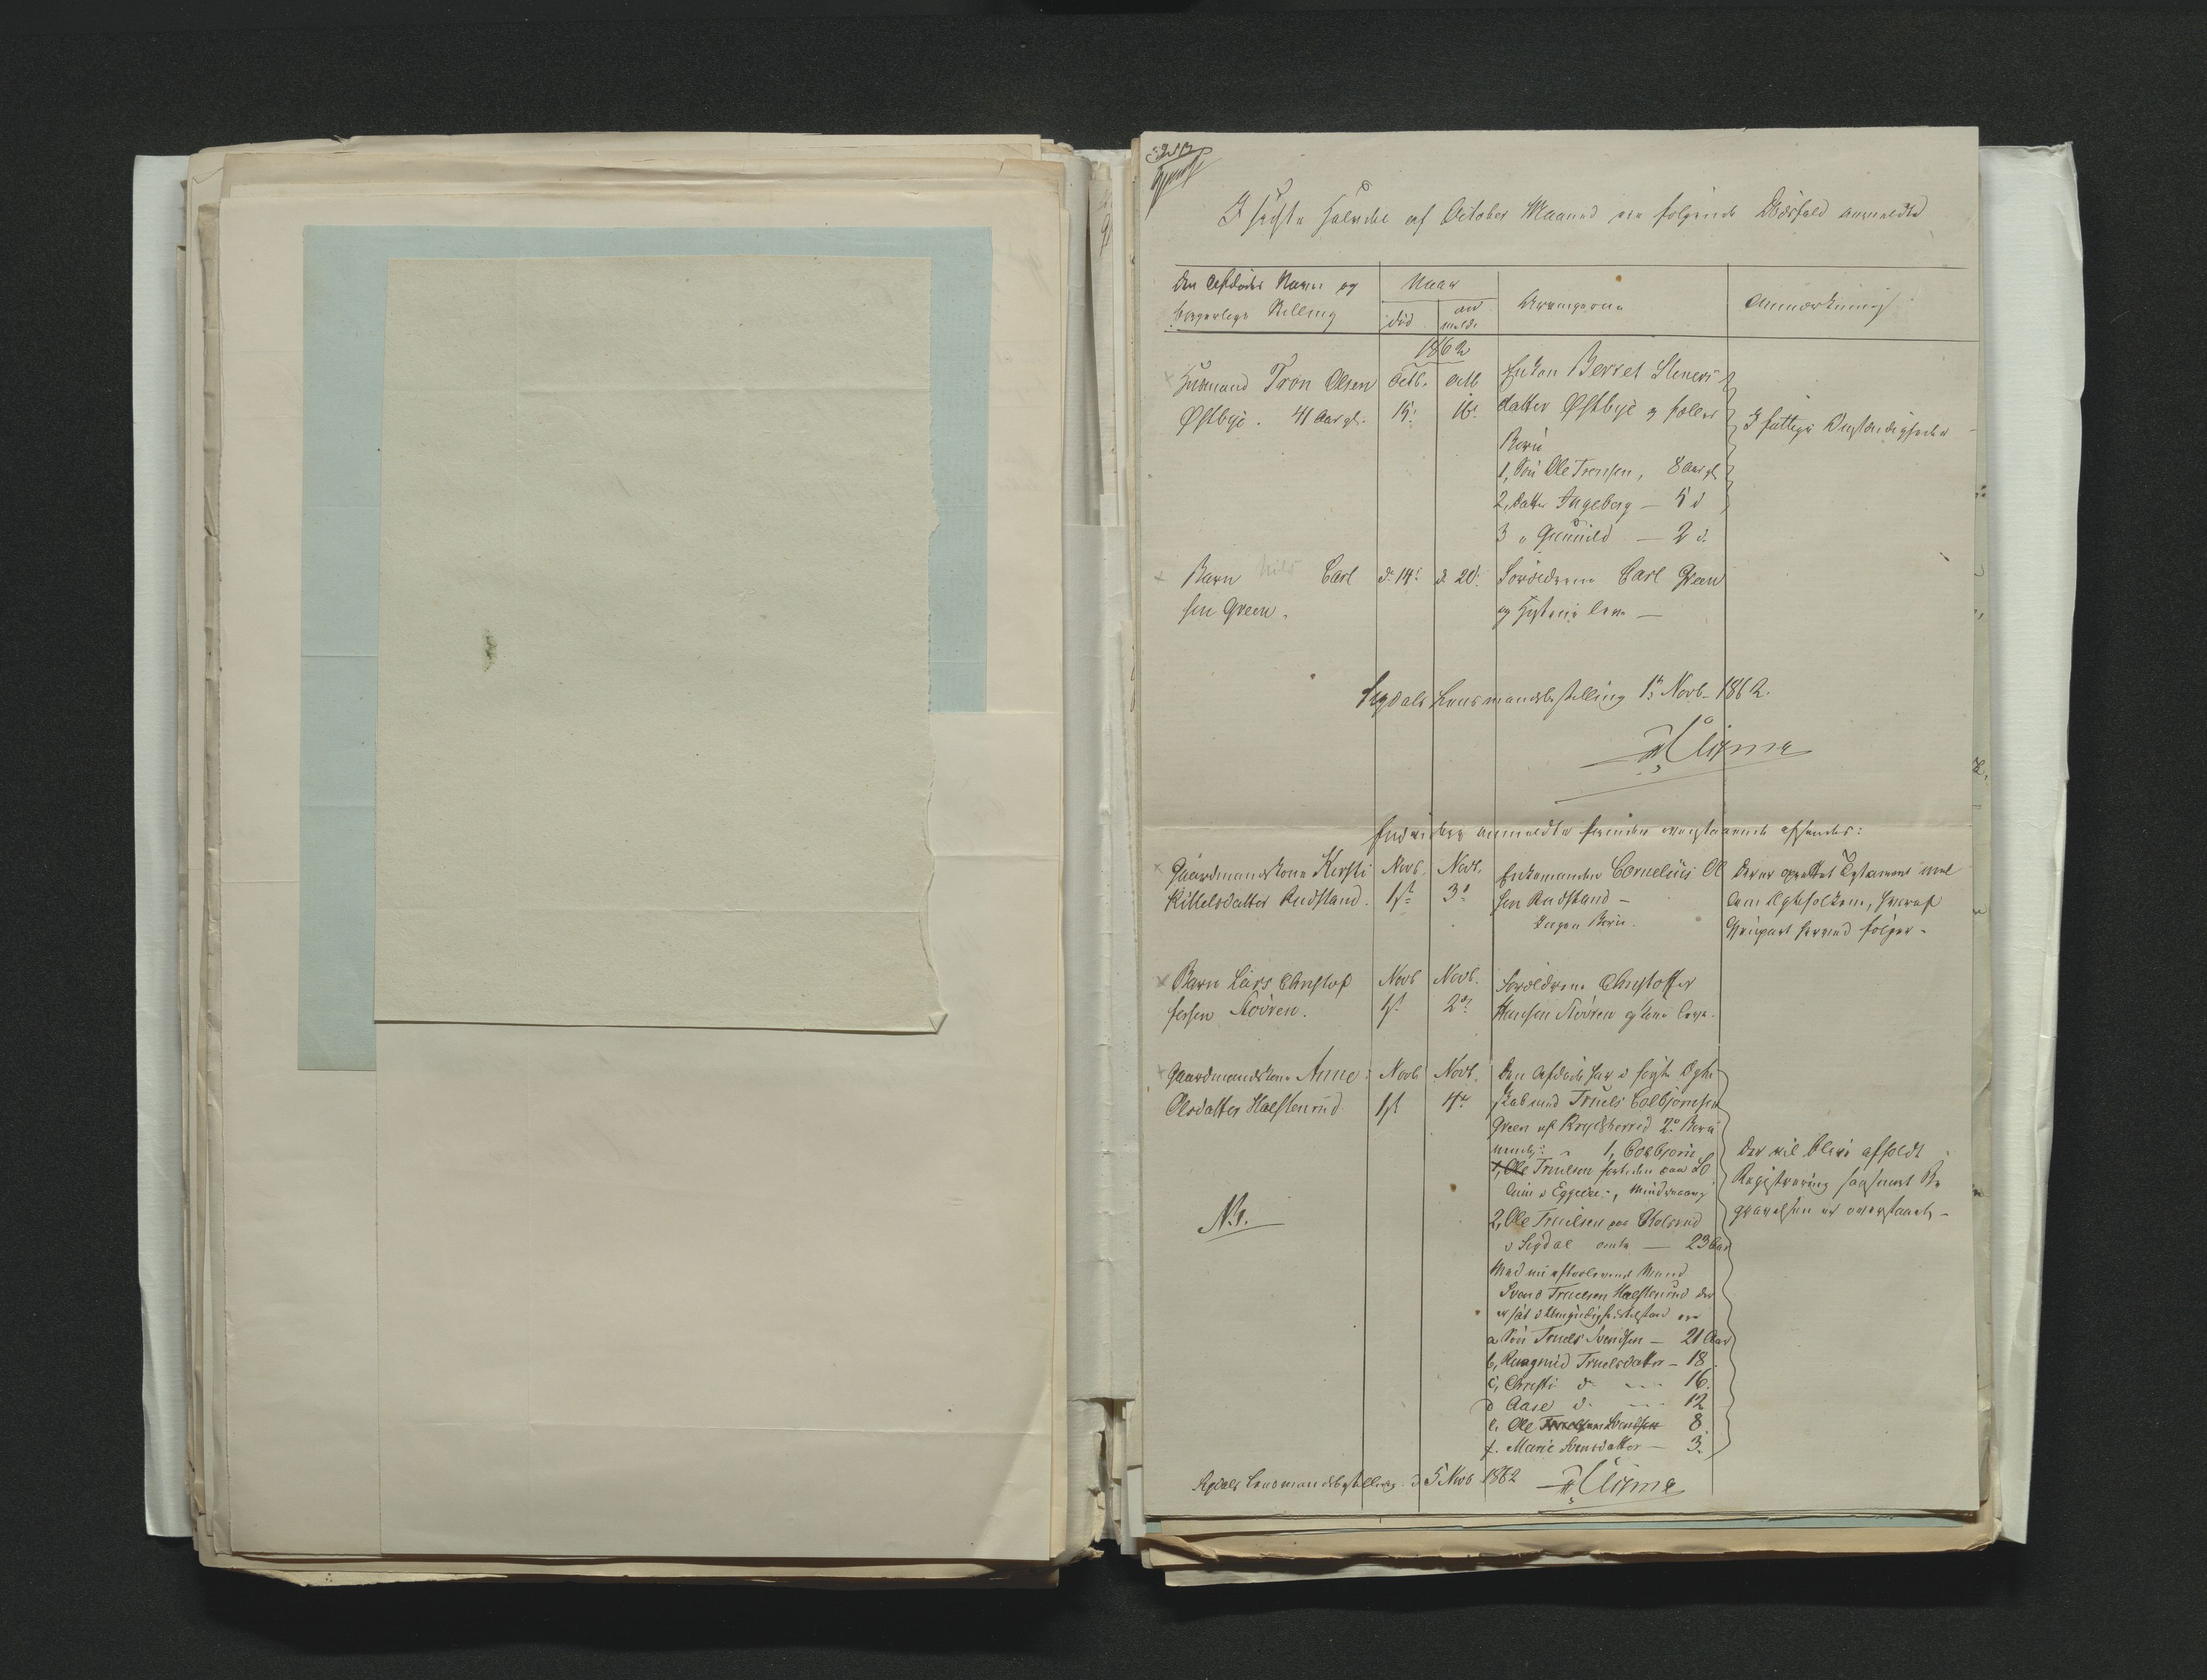 I sidste Halvdel af October Maaned ere følgende Dødsfald anmeldte
Den Afdødes Navn og
borgerlige Stilling
Naar
død
an
meldt
Arvingerne
Anmærkning
1862
Husmand Tron Olsen
Østbye. 41 Aar gl.
Octb.
15.
Octb
16.
Enken Berret Steners
datter Østbye og fælles
Børn
1, Søn Ole Tronsen, 8 Aar gl
2, Datter Ingeborg — 5 d
3 " Gunnild — 2 d.
I fattige Omstændigheder
Barn Nils Carl
sen Green.
d. 14.
d. 20.
Forældrene Carl Green
og Hustrue leve —
Sigdals Lensmandsbestilling 1. Novb. 1862.
Endvidere anmeldte førinden ovenstaaende afsendes:
Gaardmandskone Kersti
Kittelsdatter Rudstand.
Novb.
1st
Novb.
3.
Enkemanden Cornelius Ol
sen Rudstand —
Ingen Børn.
Der er oprettet Testament mel
lem Ægtefolkene, hvoraf
Gjenpart herved følger.
Barn Lars Christof
fersen Støvren.
Novb
1st
Novb.
2.
Forældrene Christoffer
Hansen Støvren og Kone leve.
Gaardmandskone Anne
Olsdatter Halstenrud.
Novb
1st
Novb.
4.
Den Afdøde har i første Ægte
skab med Truels Colbjørnsen
Green af Krydsherred 2 Børn
nemlig: 1, Colbjørn
1, Ole Truelsen
i Eggedal, Mindreaarig
2, Ole Truelsen paa Kolsrud
i Sigdal omtr — 23 Aar
Med nu efterlevende Mand
Svend Truelsen Halstenrud der
a Søn Truels Svendsen — 21 Aar
b, Raagnild Truelsdatter — 18
c, Christi d — 16.
d Aase d. — 12
e. Ole Truelsen Svendsen 8
f. Marie Svensdatter — 3.
Der vil blive afholdt
Registrering saasnart Be
gravelsen er overstaaet.
N.1.
Sigdals Lensmandsbestilling d 5 Novb 1862